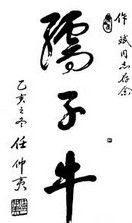 作斌同志存念
孺子牛
乙亥之冬 任仲夷